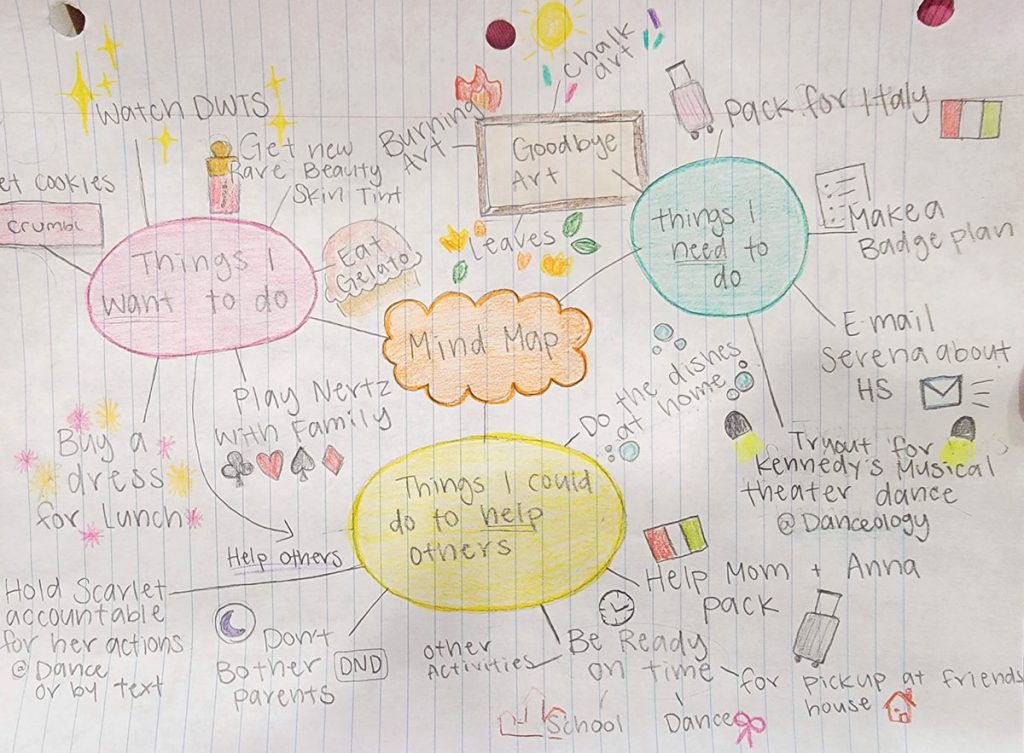 Watch DWTS
Get new
Rare Beauty
Skin Tint
et cookies
Crumbl
Things I
want to do
Eat
Gelato
Play Nertz
with Family
Buy a
dress
for Lunch
Help others
Burning
Art
Chalk
art
Goodbye
Art
Leaves
Mind Map
Things I
need to
do
Pack for Italy
Make a
Badge plan
E-mail
Serena about
HS
Tryout for
Kennedy's Musical
theater dance
@Danceology
Things I could
do to help
others
Do the dishes
at home
Help Mom + Anna
pack
Be Ready
on time
for pickup at friends
house
Dance
School
other
Activities
Don't
Bother
parents
DND
Hold Scarlet
accountable
for her actions
@ Dance
or by text